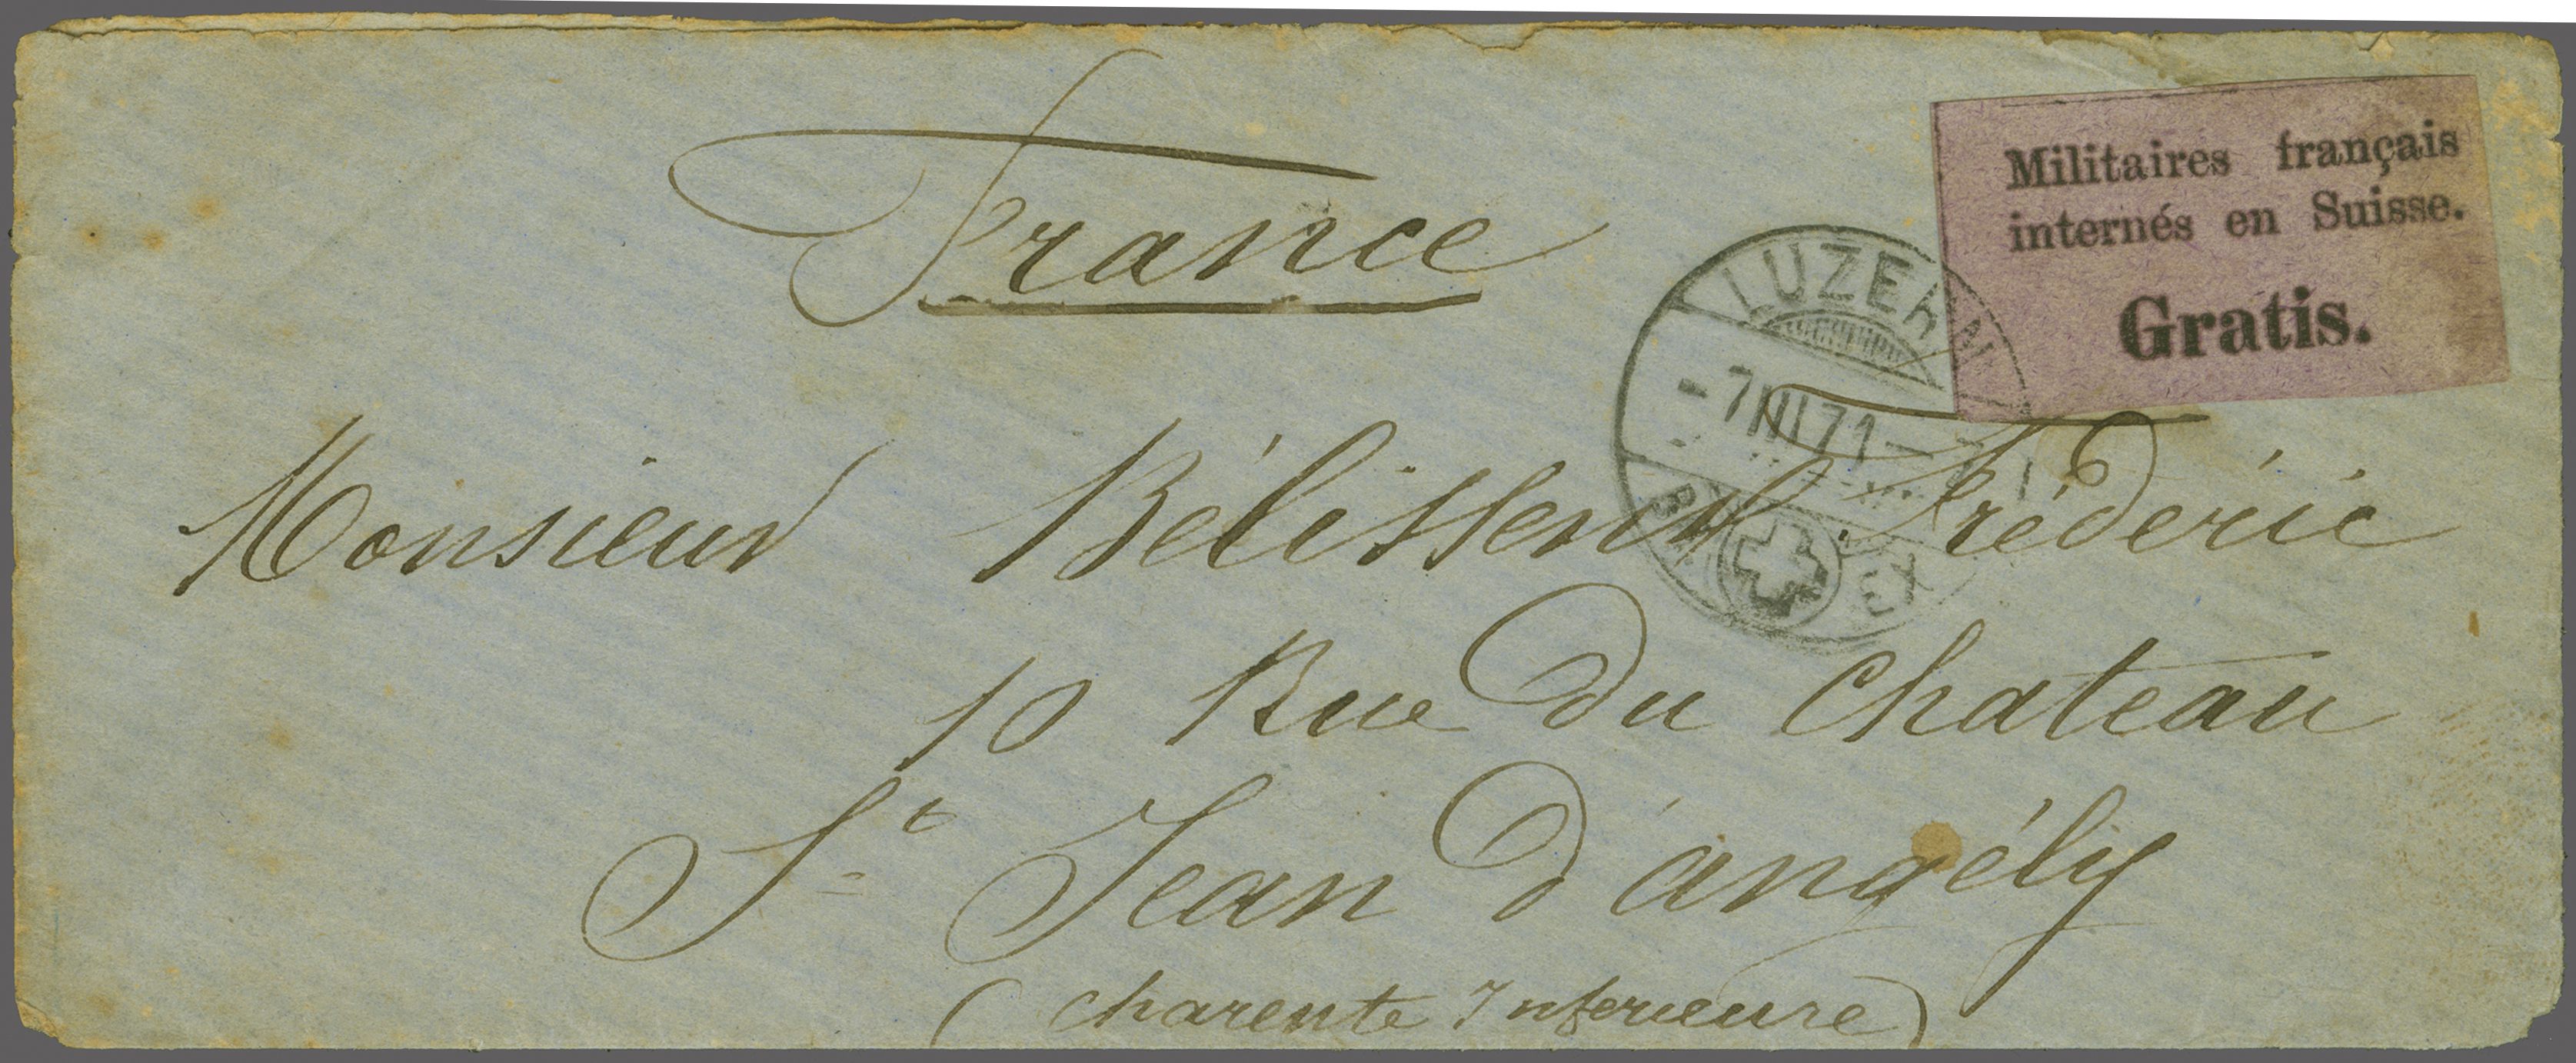 France
Militaires français
internés en Suisse.
Gratis.
LUZERN
- 7 III 71 -
EX
Monsieur Bélissent Frédéric
10 Rue du Chateau
St Jean d'angély
(Charente Inferieure)